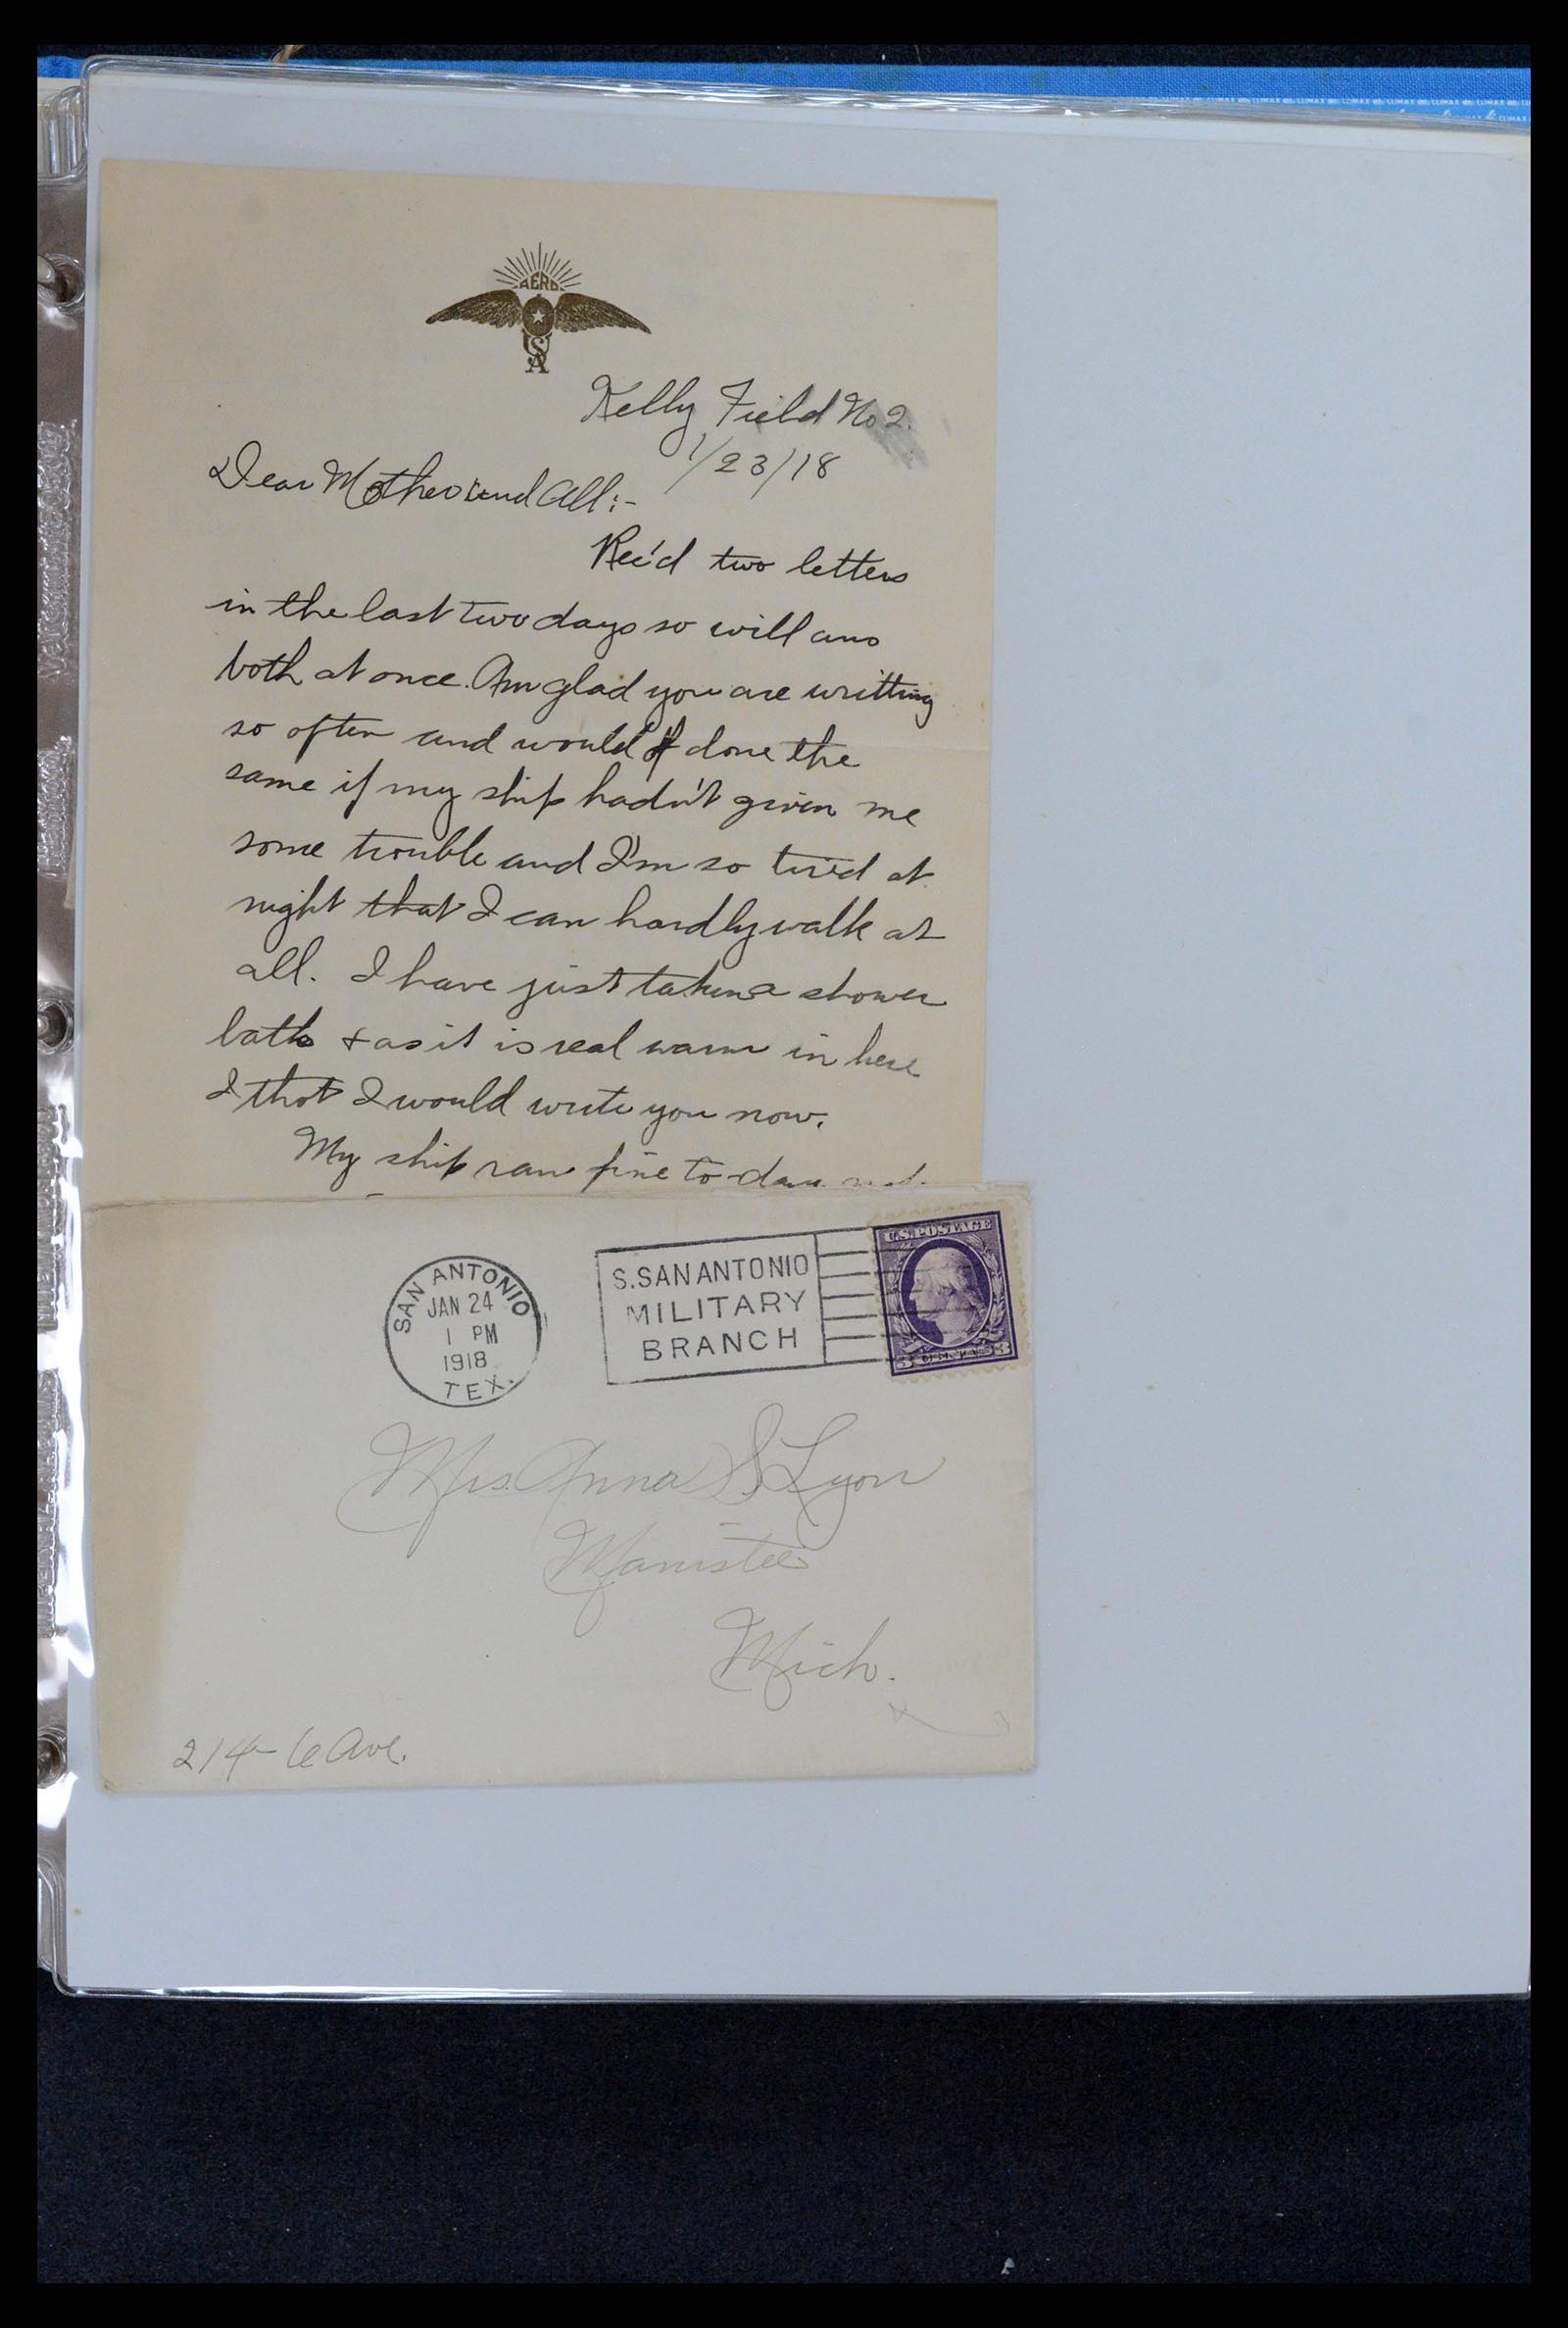 AERO
USA
Kelly Field No 2.
1/23/18
Dear Mother and All:-
Rec'd two letters
in the last two days so will ans
both at once. Am glad you are writting
so often and would of done the
same if my ship hadn't given me
some trouble and I'm so tired at
night that I can hardly walk at
all. I have just taken a shower
bath & as it is real warm in here
I thot I would write you now.
My ship ran fine to-day
SAN ANTONIO
JAN 24
1 PM
1918
TEX.
S. SAN ANTONIO
MILITARY
BRANCH
U.S. POSTAGE
3 CENTS 3
Mrs. Anna S Lyon
Manistee
Mich.
214- 6 Ave.